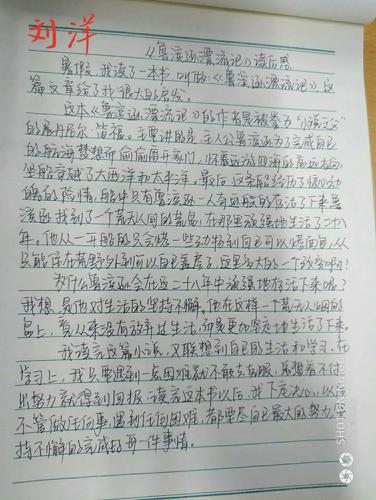 刘洋
《鲁滨逊漂流记》读后感
暑假,我读了一本书,叫做《鲁滨逊漂流记》,这
篇文章给了我很大的启发。
这本《鲁滨逊漂流记》的作者是被拳为“小说之父”
的丹尼尔·笛福。主要讲的是:主人公鲁滨逊为了完成自己
的航海梦想而偷偷离开家门,怀着远游四海的高远志向,
坐船穿越了大西洋和太平洋。最后,这条船经历了惊心动
魄的险情,船中只有鲁滨逊一人奇迹般的存活了下来。鲁
滨逊找到了一个荒无人烟的荒岛,在那里顽强地生活了二十八
年。他从一开始的只会烧一些动物到自己可以烤面包,从
只能住在荒野外到可以自己盖房子,这是多大的一个改变啊!
为什么鲁滨逊会在这二十八年中顽强地存活下来呢?
我想,是他对生活的坚持不懈。他在这样一个荒无人烟的
岛上,看从来没有放弃过生活,而是更加坚定地生活了下来。
我读完这篇小说,又联想到自己的生活和学习。在
学习上,我只要遇到一点困难就不敢去克服,总想着不付
出努力就得到回报。读完这本书以后,我下定决心,以后
不管做任何事,遇到任何困难,都要尽自己最大的努力,坚
持不懈的完成好每一件事情。
SHOT ON